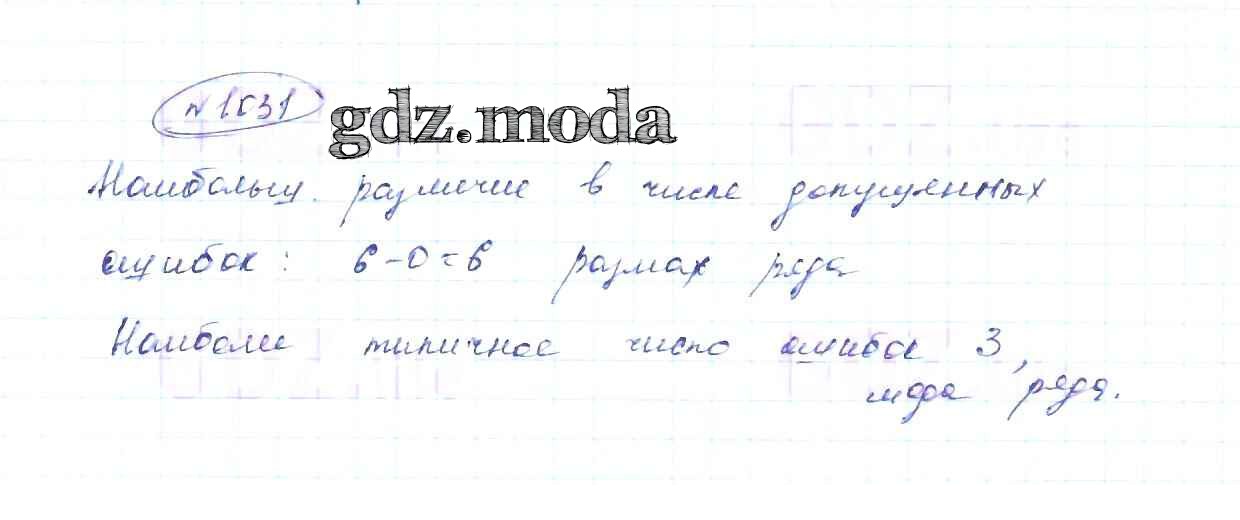 № 1031 gdz.moda
Наибольш. различие в числе допущенных
ошибок: 6-0=6 размах ряда
Наиболее типичное число ошибок 3,
мода ряда.